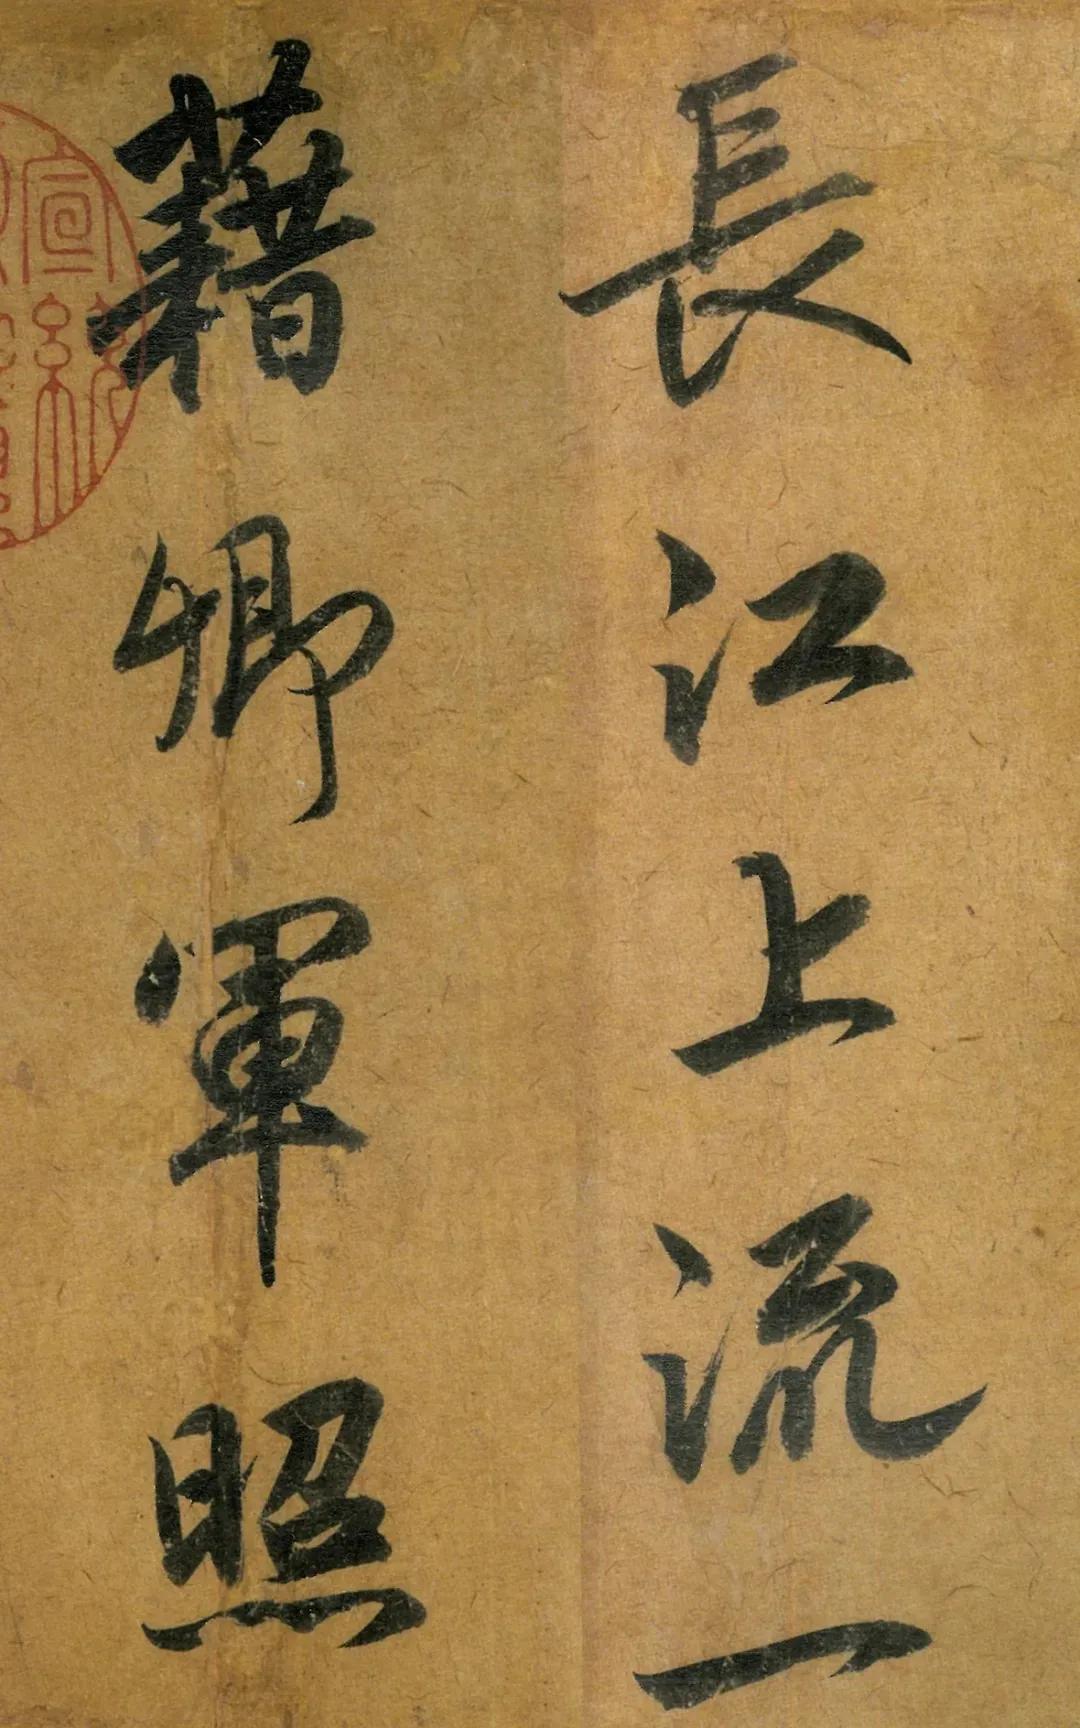 長江上流一
藉卿軍照